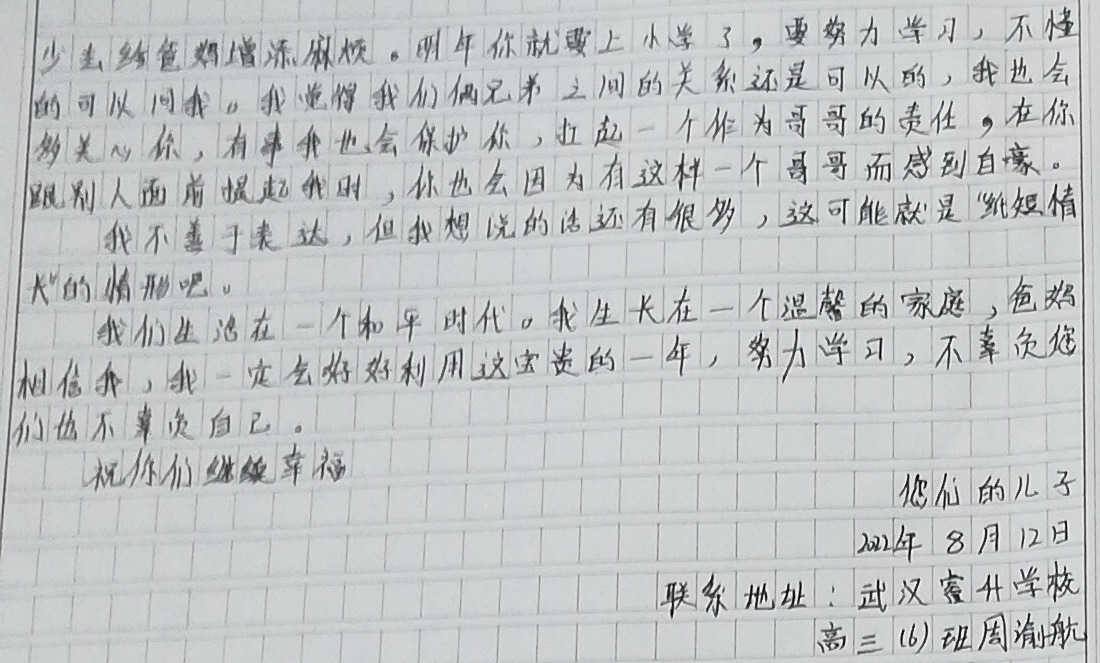 少去给爸妈增添麻烦。明年你就要上小学了,要努力学习,不懂
的可以问我。我觉得我们俩兄弟之间的关系还是可以的,我也会
多关心你,有事我也会保护你,扛起一个作为哥哥的责任,在你
跟别人面前提起我时,你也会因为有这样一个哥哥而感到自豪。
我不善于表达,但我想说的话还有很多,这可能就是“纸短情
长”的情形吧。
我们生活在一个和平时代。我生长在一个温馨的家庭,爸妈
相信我,我一定会好好利用这宝贵的一年,努力学习,不辜负您
们也不辜负自己。
祝你们继续幸福
您们的儿子
2022年8月12日
联系地址:武汉睿升学校
高三(6)班周渝航